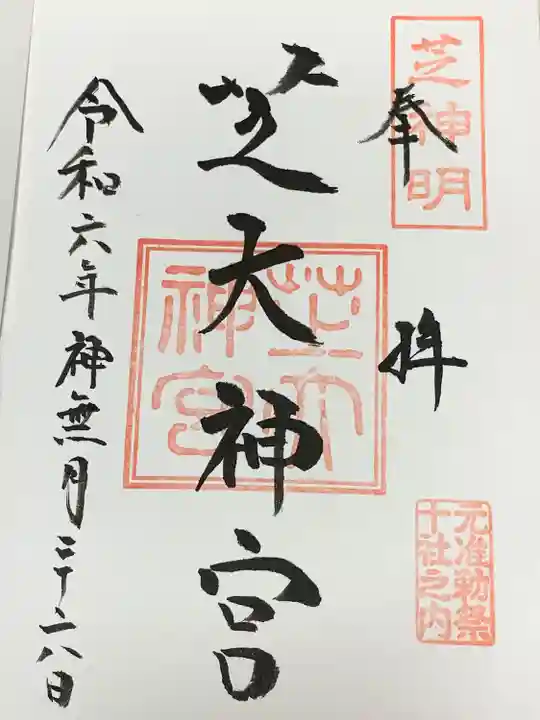 芝神明
奉拝
元准勅祭
十社之内
芝大神宮
芝大
神宮
令和六年神無月二十六日